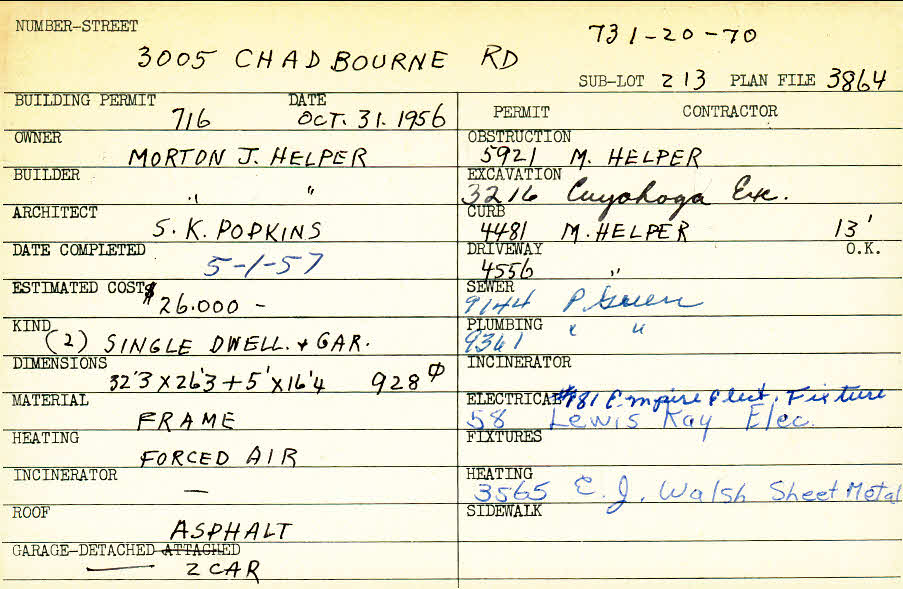 NUMBER-STREET
731-20-70
3005 CHADBOURNE RD
SUB-LOT 213 PLAN FILE 3864
BUILDING PERMIT DATE
716 OCT. 31. 1956
OWNER
MORTON J. HELPER
BUILDER
" "
ARCHITECT
S. K. POPKINS
DATE COMPLETED
5-1-57
ESTIMATED COST$
26.000 -
KIND
(2) SINGLE DWELL. + GAR.
DIMENSIONS
32'3 X 26'3 + 5' X 16'4 928
MATERIAL
FRAME
HEATING
FORCED AIR
INCINERATOR
—
ROOF
ASPHALT
GARAGE-DETACHED ATTACHED
2 CAR
PERMIT CONTRACTOR
OBSTRUCTION
5921 M. HELPER
EXCAVATION
3216 Cuyohoga Ex.
CURB
4481 M. HELPER 13'
DRIVEWAY O.K.
4556 "
SEWER
9144 P. Green
PLUMBING " "
9361
INCINERATOR
ELECTRICAL #181 Empire Elect. Fixture
58 Lewis Kay Elec.
FIXTURES
HEATING
3565 E. J. Walsh Sheet Metal
SIDEWALK